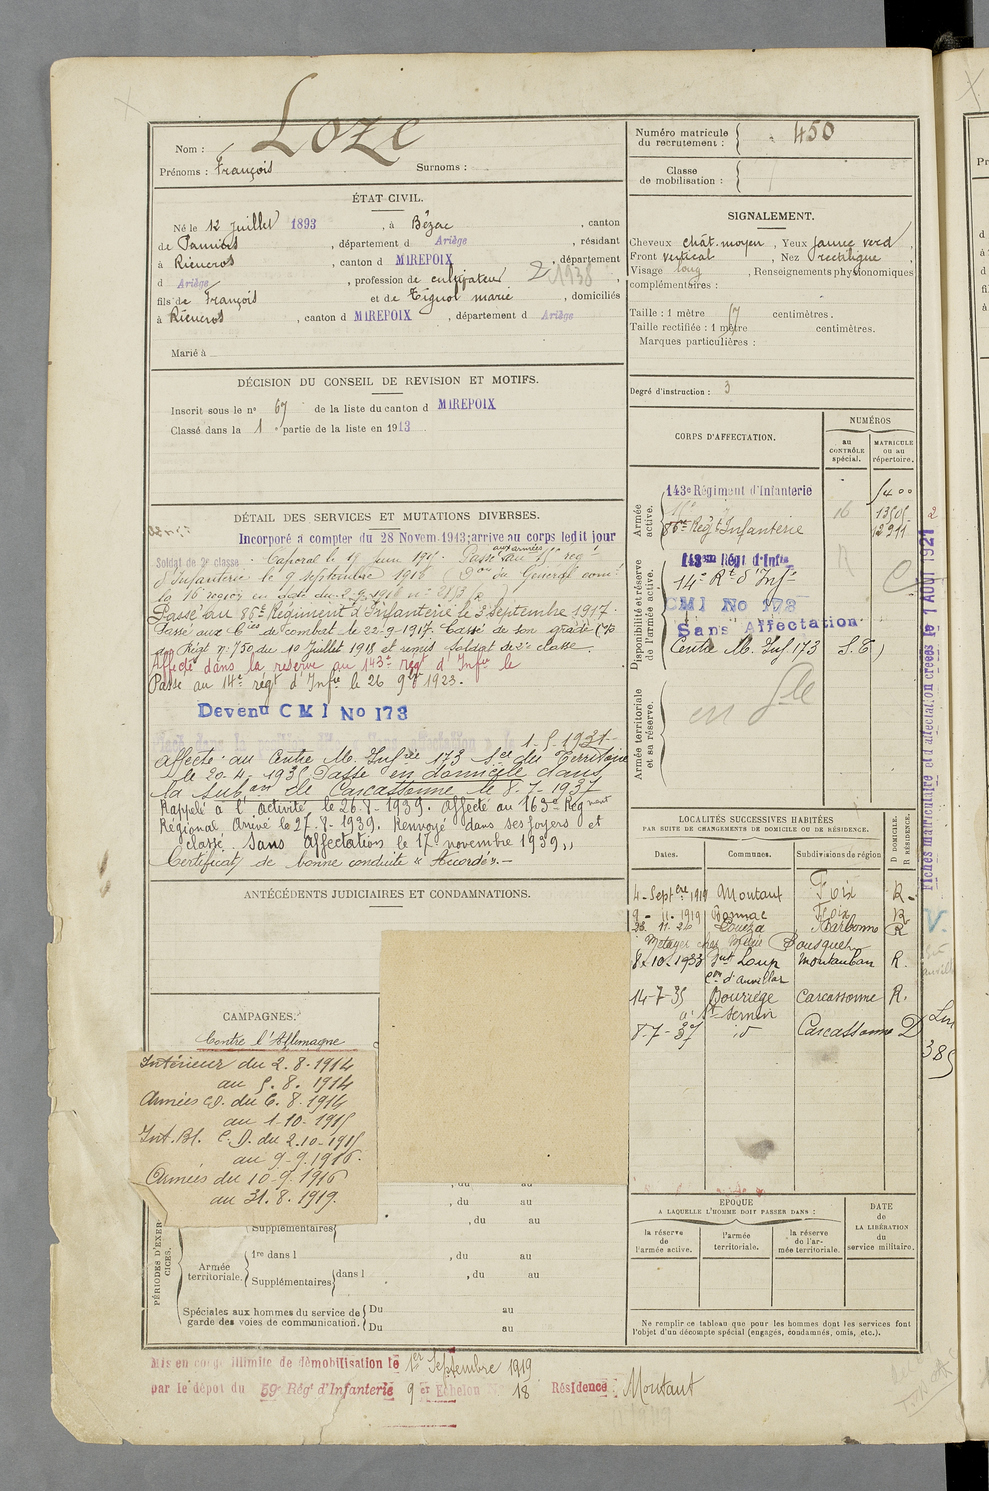 Nom : Loze
Prénoms : François Surnoms :
ÉTAT CIVIL.
Né le 12 juillet 1893, à Bézac, canton
de Pamiers, département d Ariège, résidant
à Rieucros, canton d MIREPOIX, département
d Ariège, profession de cultivateur 2 1938
fils de François et de Tignol marie, domiciliés
à Rieucros, canton d MIREPOIX, département d Ariège
Marié à
DÉCISION DU CONSEIL DE REVISION ET MOTIFS.
Inscrit sous le n° 67 de la liste du canton d MIREPOIX
Classé dans la 1e partie de la liste en 1913
DÉTAIL DES SERVICES ET MUTATIONS DIVERSES.
Incorporé à compter du 28 Novem 1913; arrive au corps ledit jour
Soldat de 2e classe. Caporal le Juin Passé aux armées au rég
d'Infanterie le 9 septembre 1916 (Don du Général comt
la 16 région en date du 2-9-1916 n°
Passé au 86e Régiment d'Infanterie le 3 Septembre 1917.
Passé aux Cies de combat le 22-9-1917. Cassé de son grade (
du Régt n° 750 du 10 Juillet 1918 et remis soldat de 2e classe.
Affecté dans la réserve au 143e régt d'Infie le
Passé au 14e régt d'Infie le 26 9bre 1923.
Devenu CMI No 173
1-5-1931
affecté au Centre M. Inf rie 173 Sce du Territoire
le 20-4-1935 Passé en domicile dans
la subon de Carcassonne le 8-7-1937
Rappelé à l'activité le 26-8-1939. Affecté au 163e Régiment
Régional Arivé le 27-8-1939. Renvoyé dans ses foyers et
classé Sans affectation le 17 novembre 1939
Certificat de bonne conduite « Accordé ». –
ANTÉCÉDENTS JUDICIAIRES ET CONDAMNATIONS.
CAMPAGNES.
Contre l'Allemagne
Intérieur du 2.8.1914
au 5.8.1914
Armées CD. du 6.8.1914
au 1-10-1915
Int. Bl. C.D. du 2.10-1915
au 9-9.1916.
Armées du 10-9-1916
au 31.8.1919.
PÉRIODES D'EXERCICES.
, du au
, du au
Supplémentaires , du au
Armée territoriale. 1re dans l , du au
Supplémentaires dans l , du au
Spéciales aux hommes du service de Du au
garde des voies de communication. Du au
Mis en congé illimité de démobilisation le 1er Septembre 1919
par le dépôt du 59e Régt d'Infanterie 9er Echelon 18 Résidence : Montaut
Numéro matricule
du recrutement : 450
Classe
de mobilisation :
SIGNALEMENT.
Cheveux chât. moyen, Yeux jaune verd,
Front vertical, Nez rectiligne,
Visage long, Renseignements physionomiques
complémentaires :
Taille : 1 mètre 67 centimètres.
Taille rectifiée : 1 mètre centimètres.
Marques particulières :
Degré d'instruction : 3
CORPS D'AFFECTATION.
NUMÉROS
au CONTRÔLE spécial.
MATRICULE ou au répertoire.
Armée active.
143e Régiment d'Infanterie 5400
16 13505
86me Régt Infanterie 12911
Disponibilité et réserve de l'armée active.
143me Régt d'Infie
14e Rt d'Inf ie
CMI No 173
Sans Affectation
Centre M. Inf 173 S.T)
Armée territoriale et sa réserve.
en Sle
Fiches matriculaire et d'affectation créées le 1 AOUT 1921
LOCALITÉS SUCCESSIVES HABITÉES
PAR SUITE DE CHANGEMENTS DE DOMICILE OU DE RÉSIDENCE.
Dates. Communes. Subdivisions de région D DOMICILE. R RÉSIDENCE.
4-Septbre 1919 Montaut Foix R.
9-11-1919 Bonnac Foix R
11.26 Couiza Narbonne R
Métayer chez Bousquet
8.10.1933 St Loup Montauban R.
Con d'Auvillar
14-7-35 Bouriège Carcassonne R.
à St Sernin
8-7-37 id Carcassonne D
385
EPOQUE
A LAQUELLE L'HOMME DOIT PASSER DANS :
la réserve de l'armée active.
l'armée territoriale.
la réserve de l'armée territoriale.
DATE de LA LIBÉRATION du service militaire.
Ne remplir ce tableau que pour les hommes dont les services font
l'objet d'un décompte spécial (engagés, condamnés, omis, etc.).